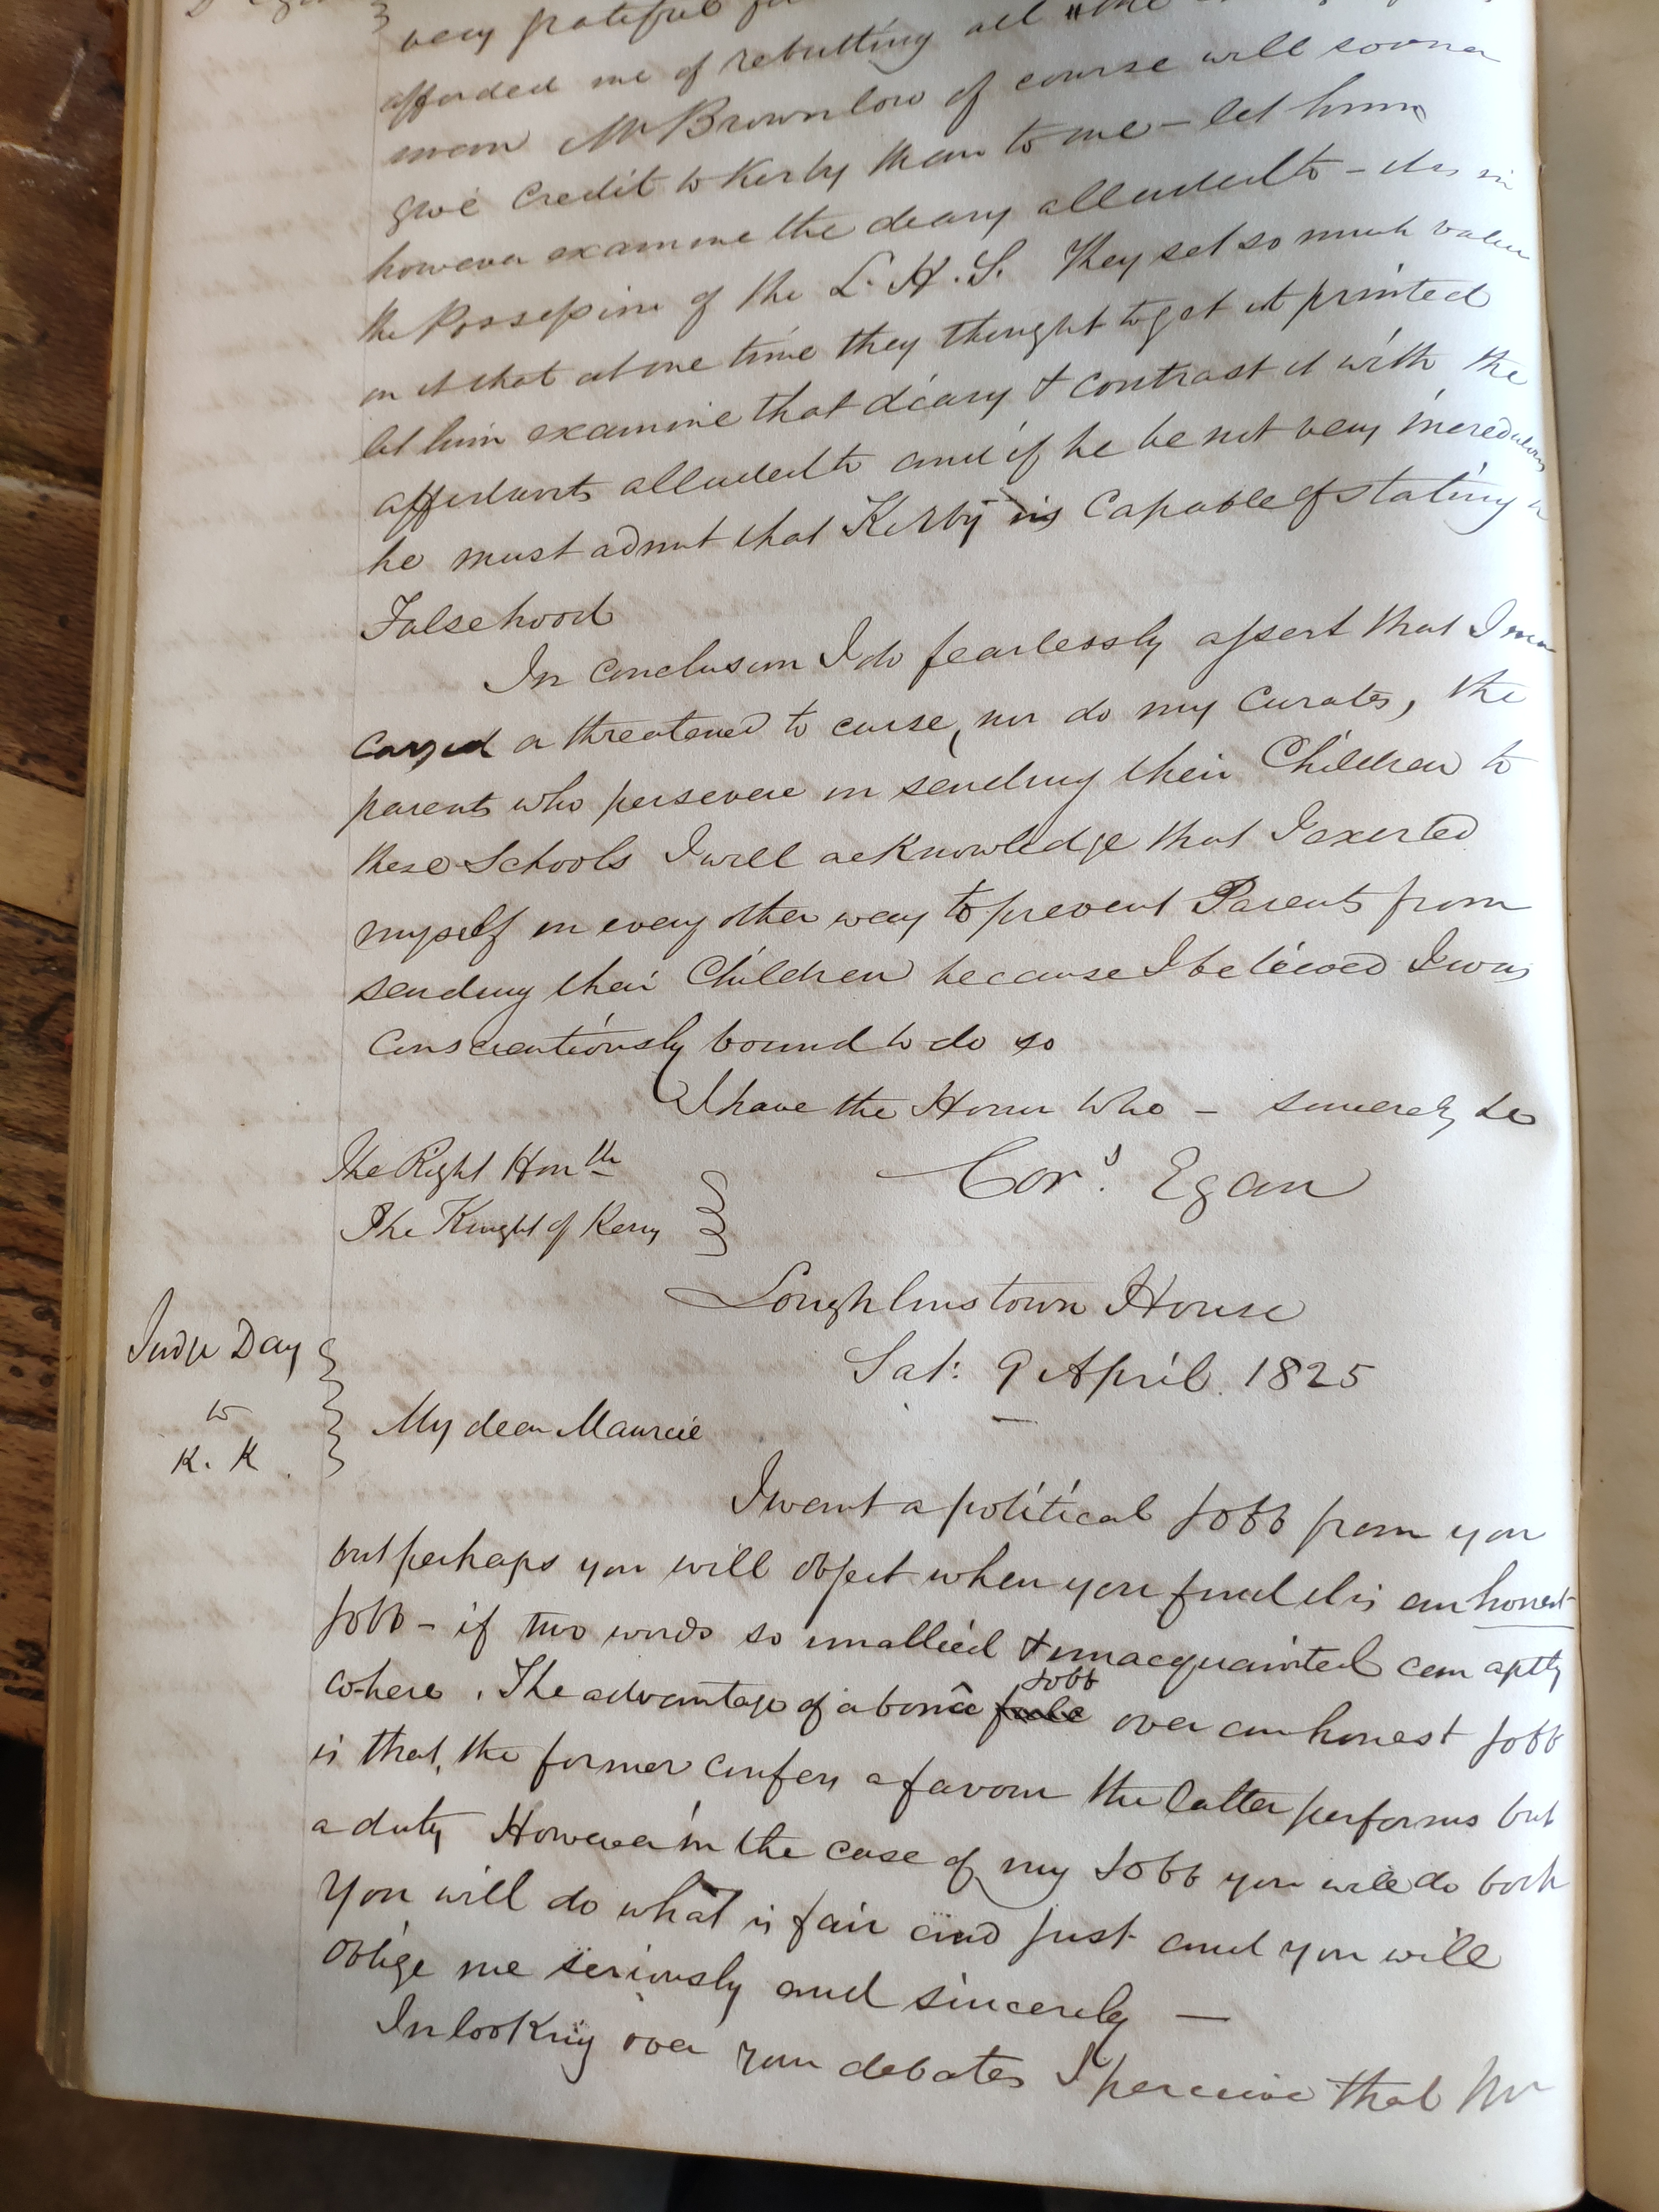 very grateful
afforded me of rebutting all the
man Mr Brownlow of course will sooner
give credit to Kirby than to me – let him
however examine the diary alluded to – it is in
the Possession of the L. H. S. They set so much value
on it that at one time they thought to get it printed
let him examine that diary & contrast it with the
affidavits alluded to and if he be not very incredulous
he must admit that Kirby is capable of stating a
Falsehood
In conclusion I do fearlessly assert that I
cursed or threatened to curse, nor do my Curates, the
parents who persevere in sending their Children to
these Schools I will acknowledge that I exerted
myself in every other way to prevent Parents from
sending their Children because I believed I was
conscientiously bound to do so
I have the Honor to be – sincerely &c
The Right Honble
Cors. Egan
The Knight of Kerry
Loughlinstown House
Sat: 9 April. 1825
Judge Day
to
K. K
My dear Maurice
I want a political Jobb from you
but perhaps you will object when you find it is an honest
Jobb – if two words so unallied & unacquainted can aptly
cohere. The advantage of a bonâ fide Jobb over an honest Jobb
is that, the former confers a favour the latter performs but
a duty However in the case of my Jobb you will do both
You will do what is fair and just and you will
oblige me seriously and sincerely —
In looking over your debates I perceive that Mr